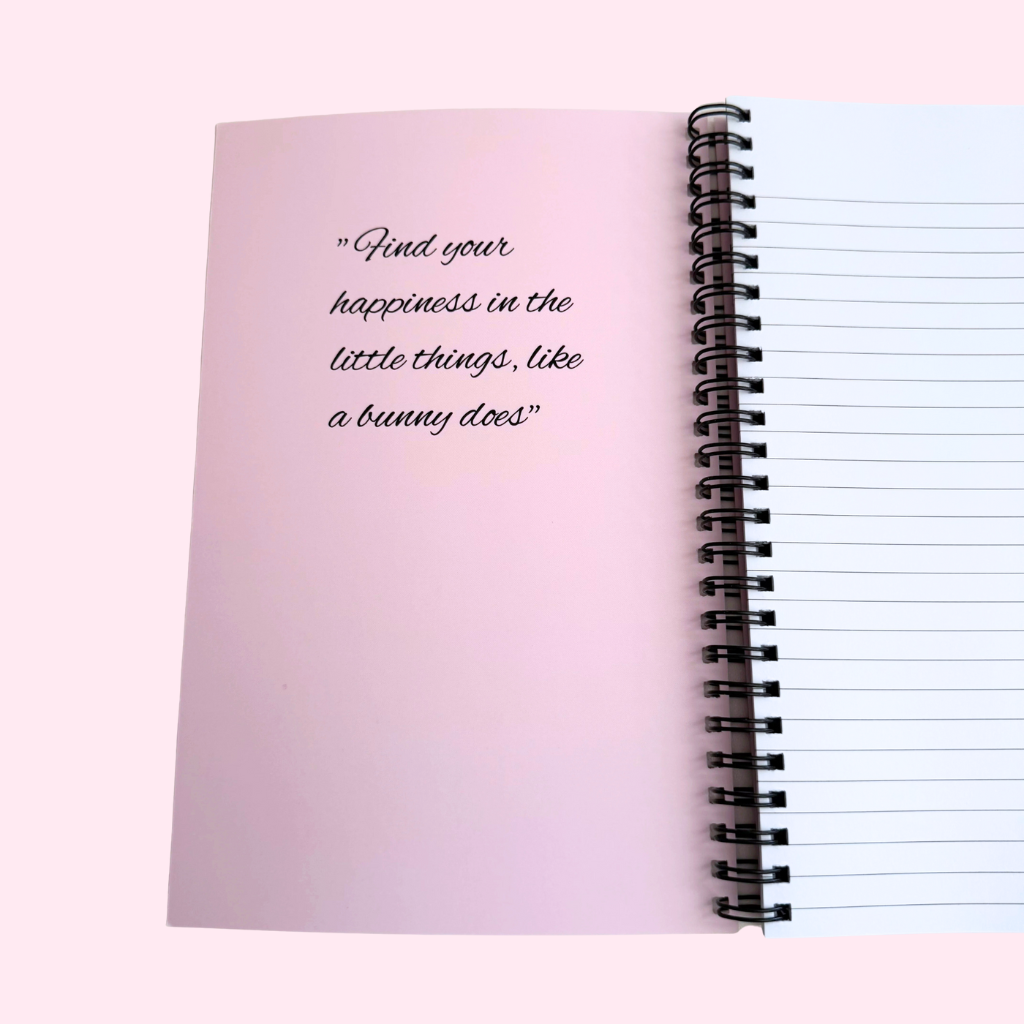 ”Find your
happiness in the
little things, like
a bunny does”